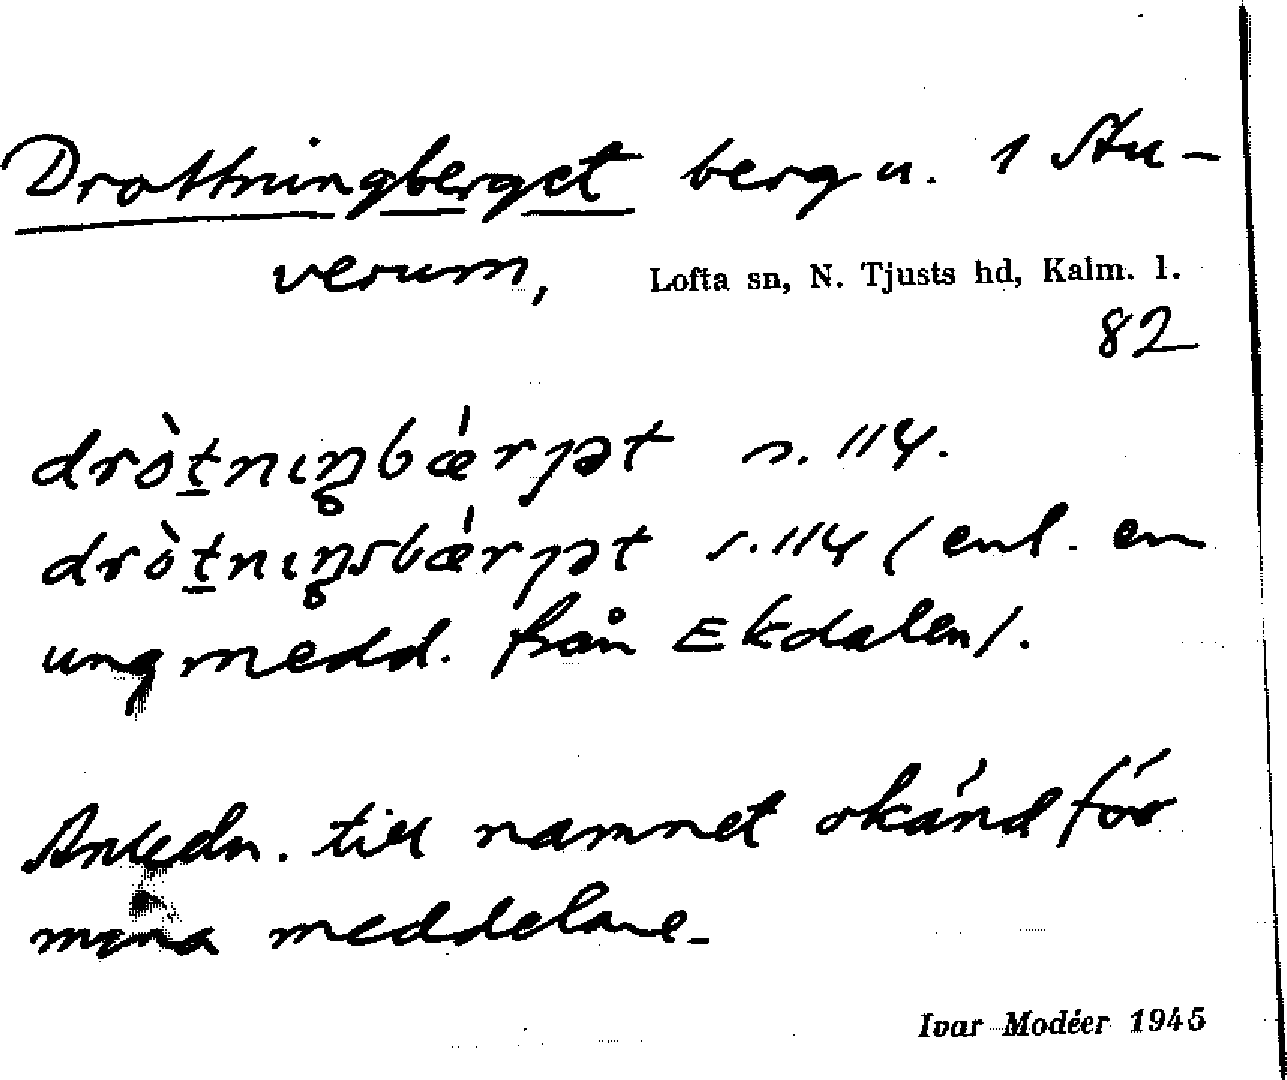 Drottningberget berg u. 1 Åu-
verum, Lofta sn, N. Tjusts hd, Kalm. l.
82
drò̀tnıŋbǽrjət s. 114.
drò̀tnıŋsbǽrjət s. 114 (enl. en
ung medd. från Ekdalen).
Anledn. till namnet okänd för
mina meddelare.
Ivar Modéer 1945